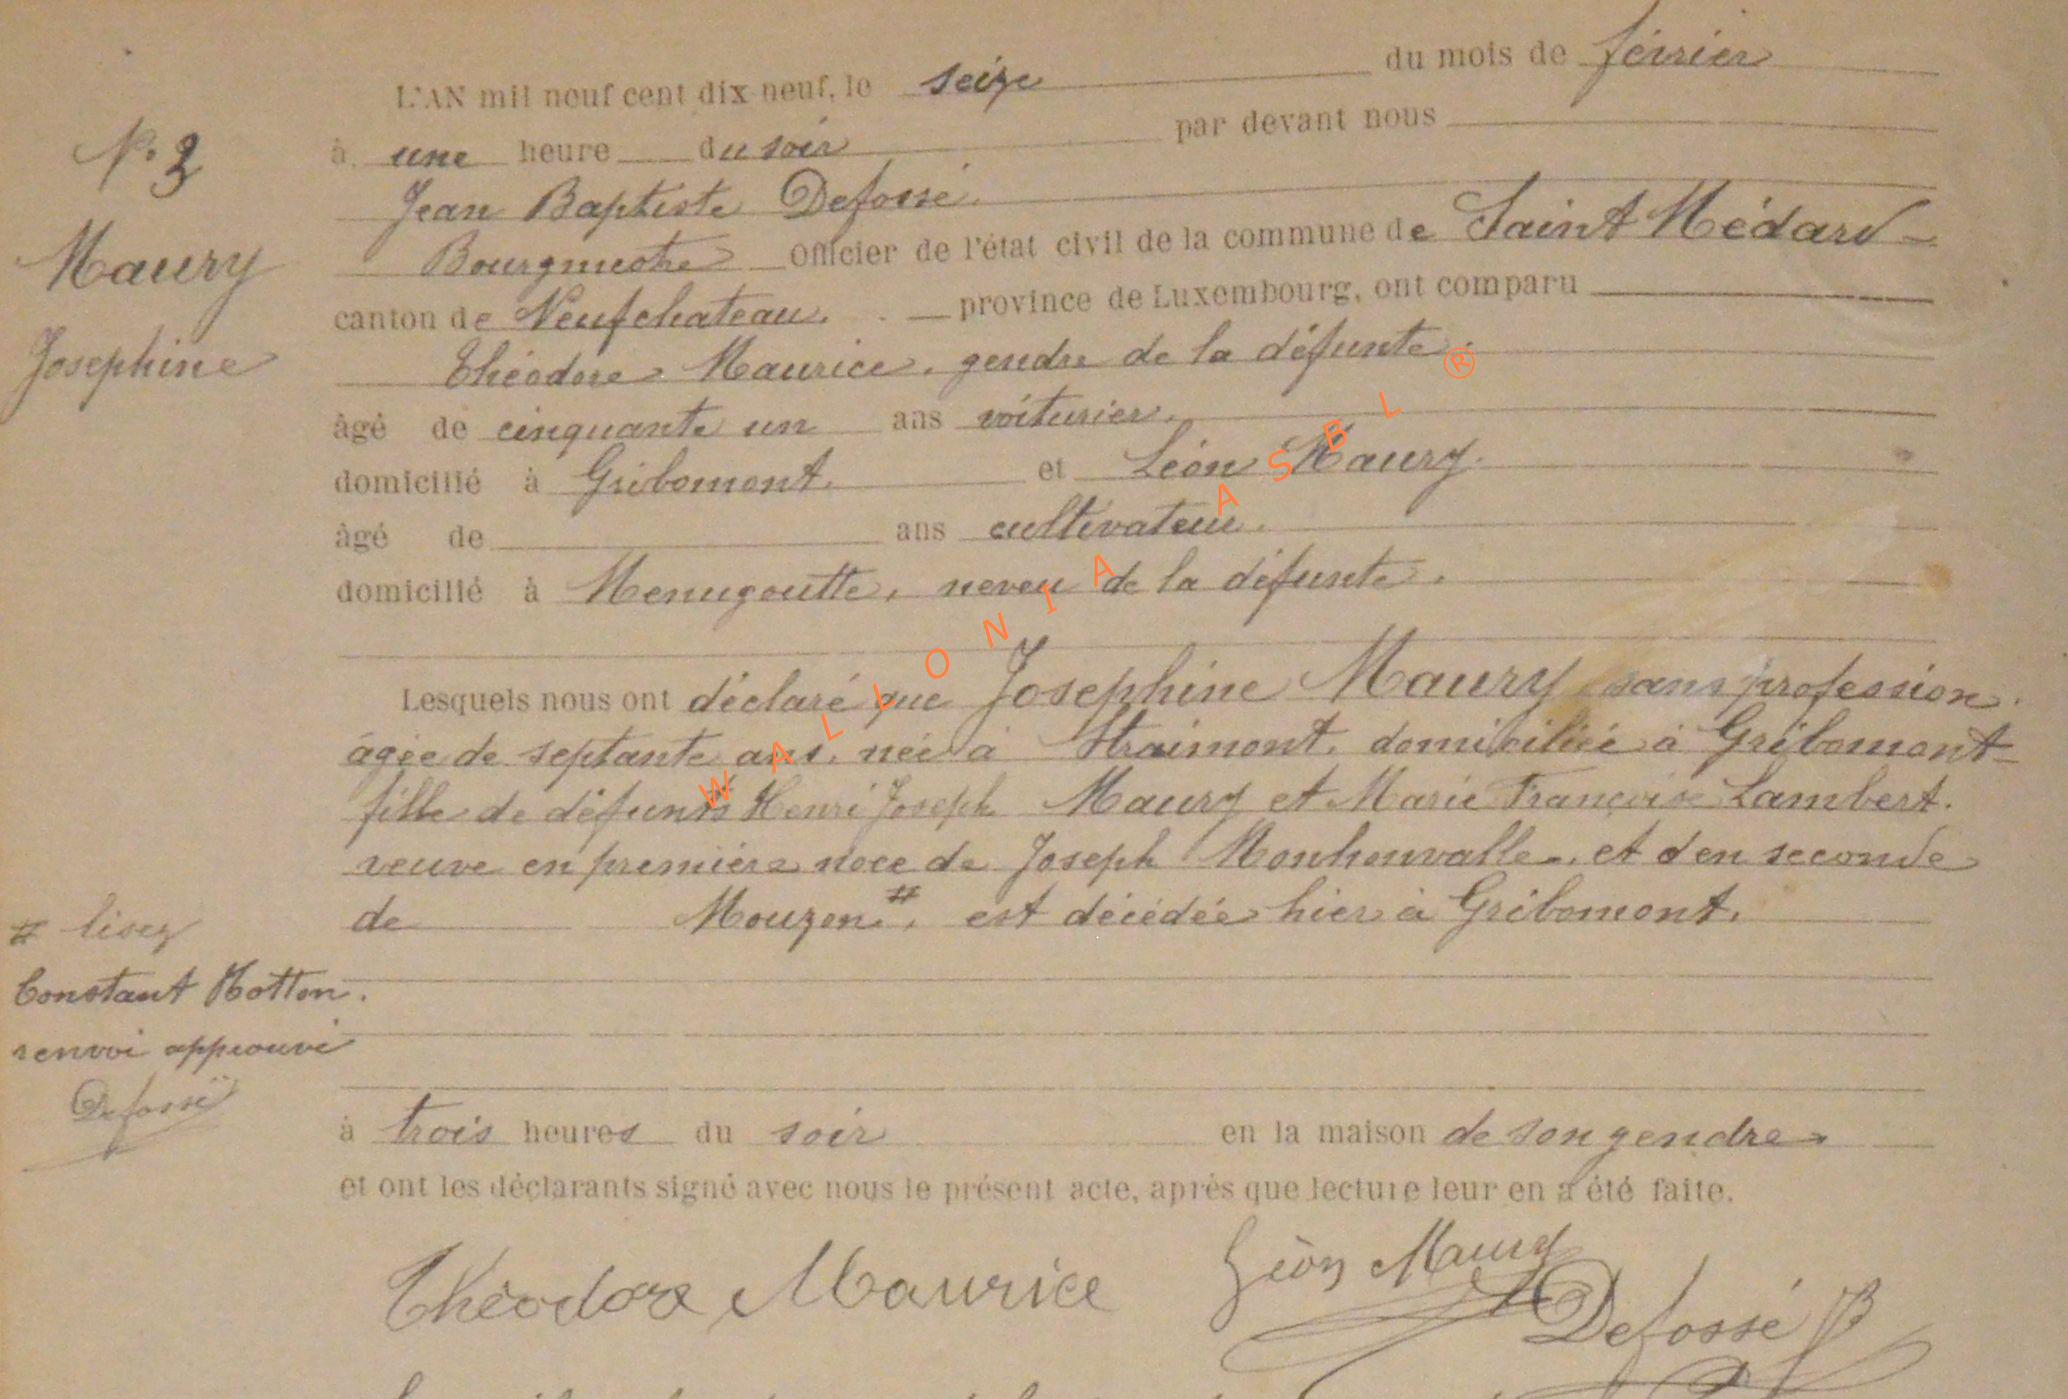 N° 3
Maury
Josephine
L'AN mil neuf cent dix neuf, le seize du mois de février
à une heure du soir par devant nous
Jean Baptiste Defossé
Bourgmestre Officier de l'état civil de la commune de Saint Médard
canton de Neufchateau. province de Luxembourg, ont comparu
Théodore Maurice, gendre de la défunte.
âgé de cinquante un ans voiturier.
domicilié à Gribomont. et Léon Maury.
âgé de ans cultivateur.
domicilié à Menugoutte, neveu de la défunte.
Lesquels nous ont déclaré que Josephine Maury, sans profession.
âgée de septante ans, née à Straimont, domiciliée à Gribomont
fille de défunts Henri Joseph Maury et Marie Françoise Lambert.
veuve en première noce de Joseph Monhonvalle, et d'en seconde
de Mouzon #, est décédée hier à Gribomont.
# lisez
Constant Motton.
renvoi approuvé
Defossé
à trois heures du soir en la maison de son gendre
et ont les déclarants signé avec nous le présent acte, après que lecture leur en a été faite.
Théodore Maurice Léon Maury
Defossé JB
WALLONIA ASBL ®